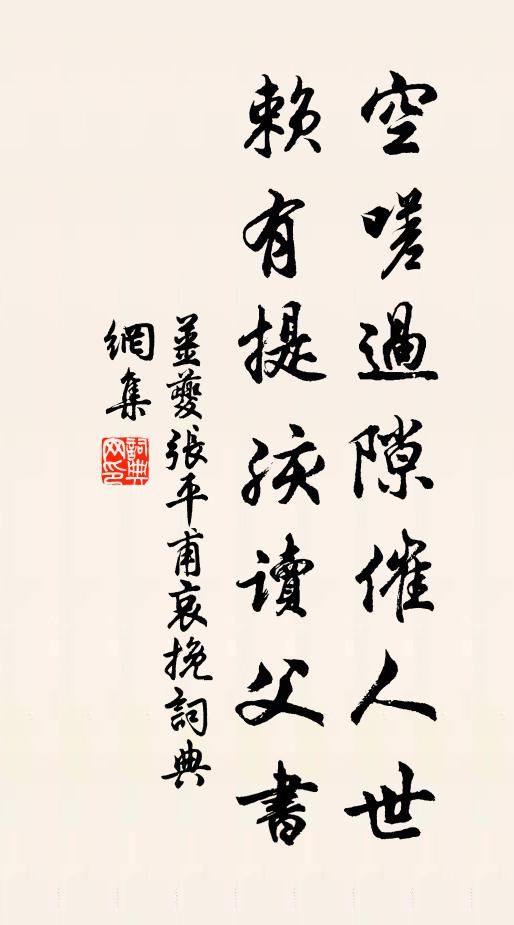 空嗟過隙催人世
賴有提孩讀父書
姜夔張平甫哀挽詞典
網集
詞典网印